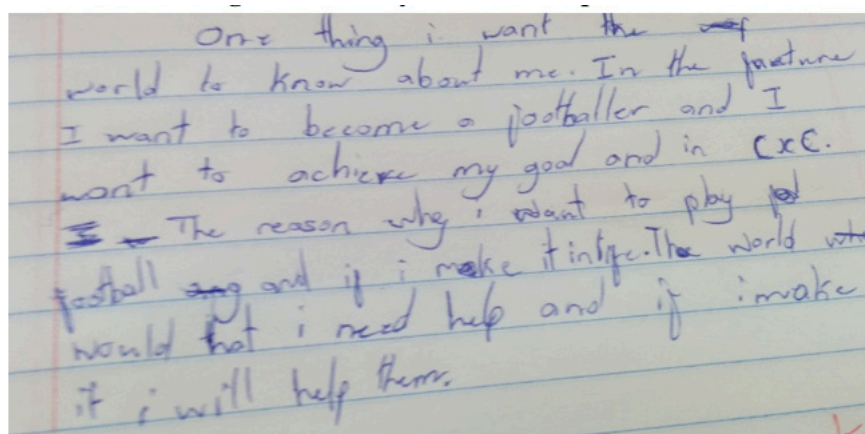 One thing i want the
world to know about me. In the fueture
I want to become a footballer and I
want to achieve my goal and in CXC.
The reason why i want to play
football and if i make it in life. The world
would that i need help and if i make
it i will help them.